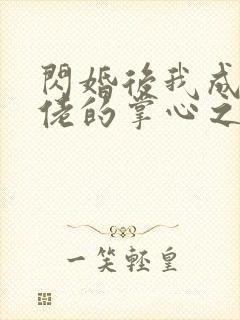 閃婚後我成
佬的掌心之
一笑輕皇